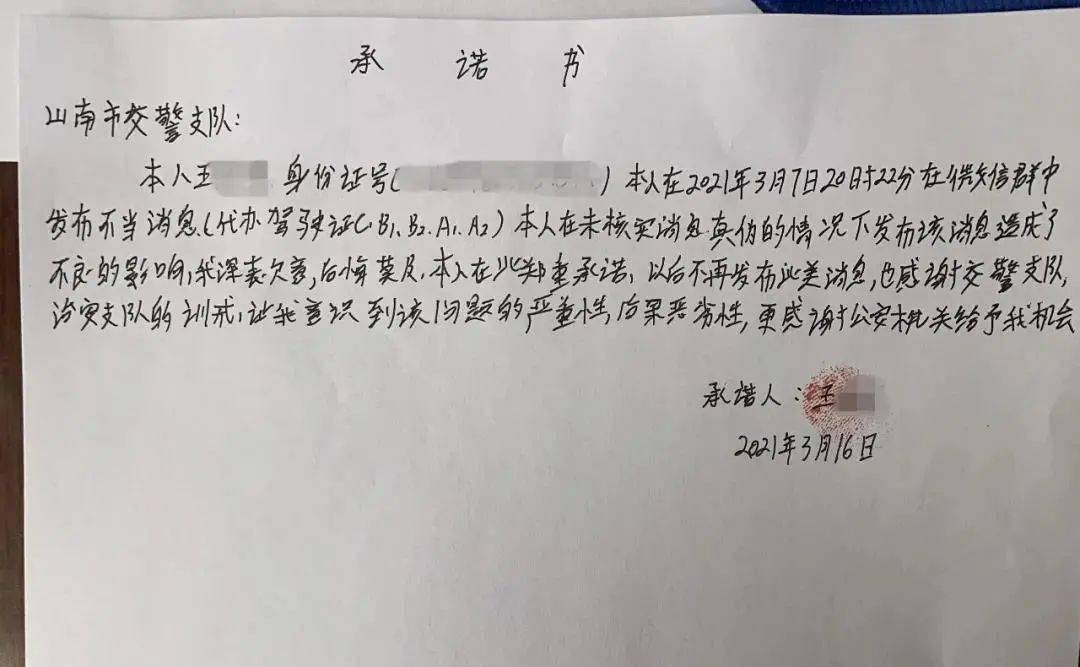 承诺书
山南市交警支队:
本人王 身份证号( )本人在2021年3月7日20时22分在供信群中
发布不当消息(代办驾驶证C.B1.B2.A1.A2)本人在未核实消息真伪的情况下发布该消息造成了
不良的影响,我深表欠意,后悔莫及,本人在此郑重承诺,以后不再发布此类消息,也感谢交警支队,
治安支队的训戒,让我意识到该问题的严重性,后果恶劣性,更感谢公安机关给予我机会
承诺人:王
2021年3月16日